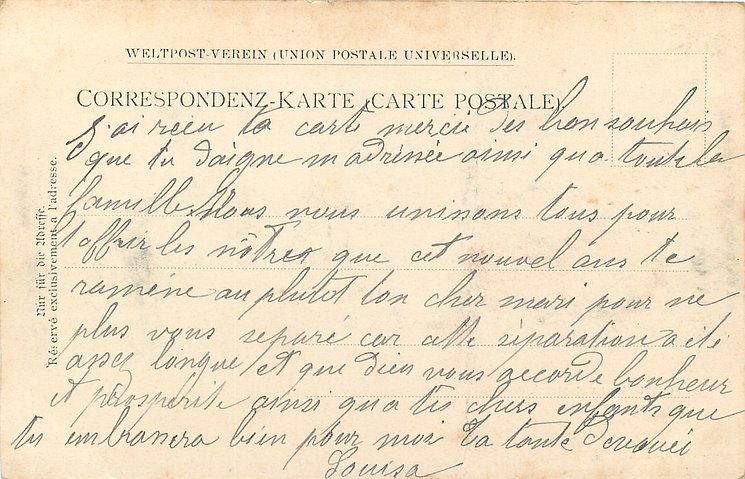 WELTPOST-VEREIN (UNION POSTALE UNIVERSELLE).
CORRESPONDENZ-KARTE (CARTE POSTALE).
Nur für die Adresse.
Réservé exclusivement à l'adresse.
J'ai recu ta carte merci des bon souhais
que tu daigne m'adrésée ainsi qu'a toute la
famille Nous nous unissons tous pour
t'offrir les nôtres que cet nouvel ans te
ramène au plutot ton cher mari pour ne
plus vous séparé car cette séparation a été
assez longue et que dieu vous accorde bonheur
et prospérite ainsi qu'a tes chers enfants que
tu embrassera bien pour moi Ta tante dévouéi
Louisa